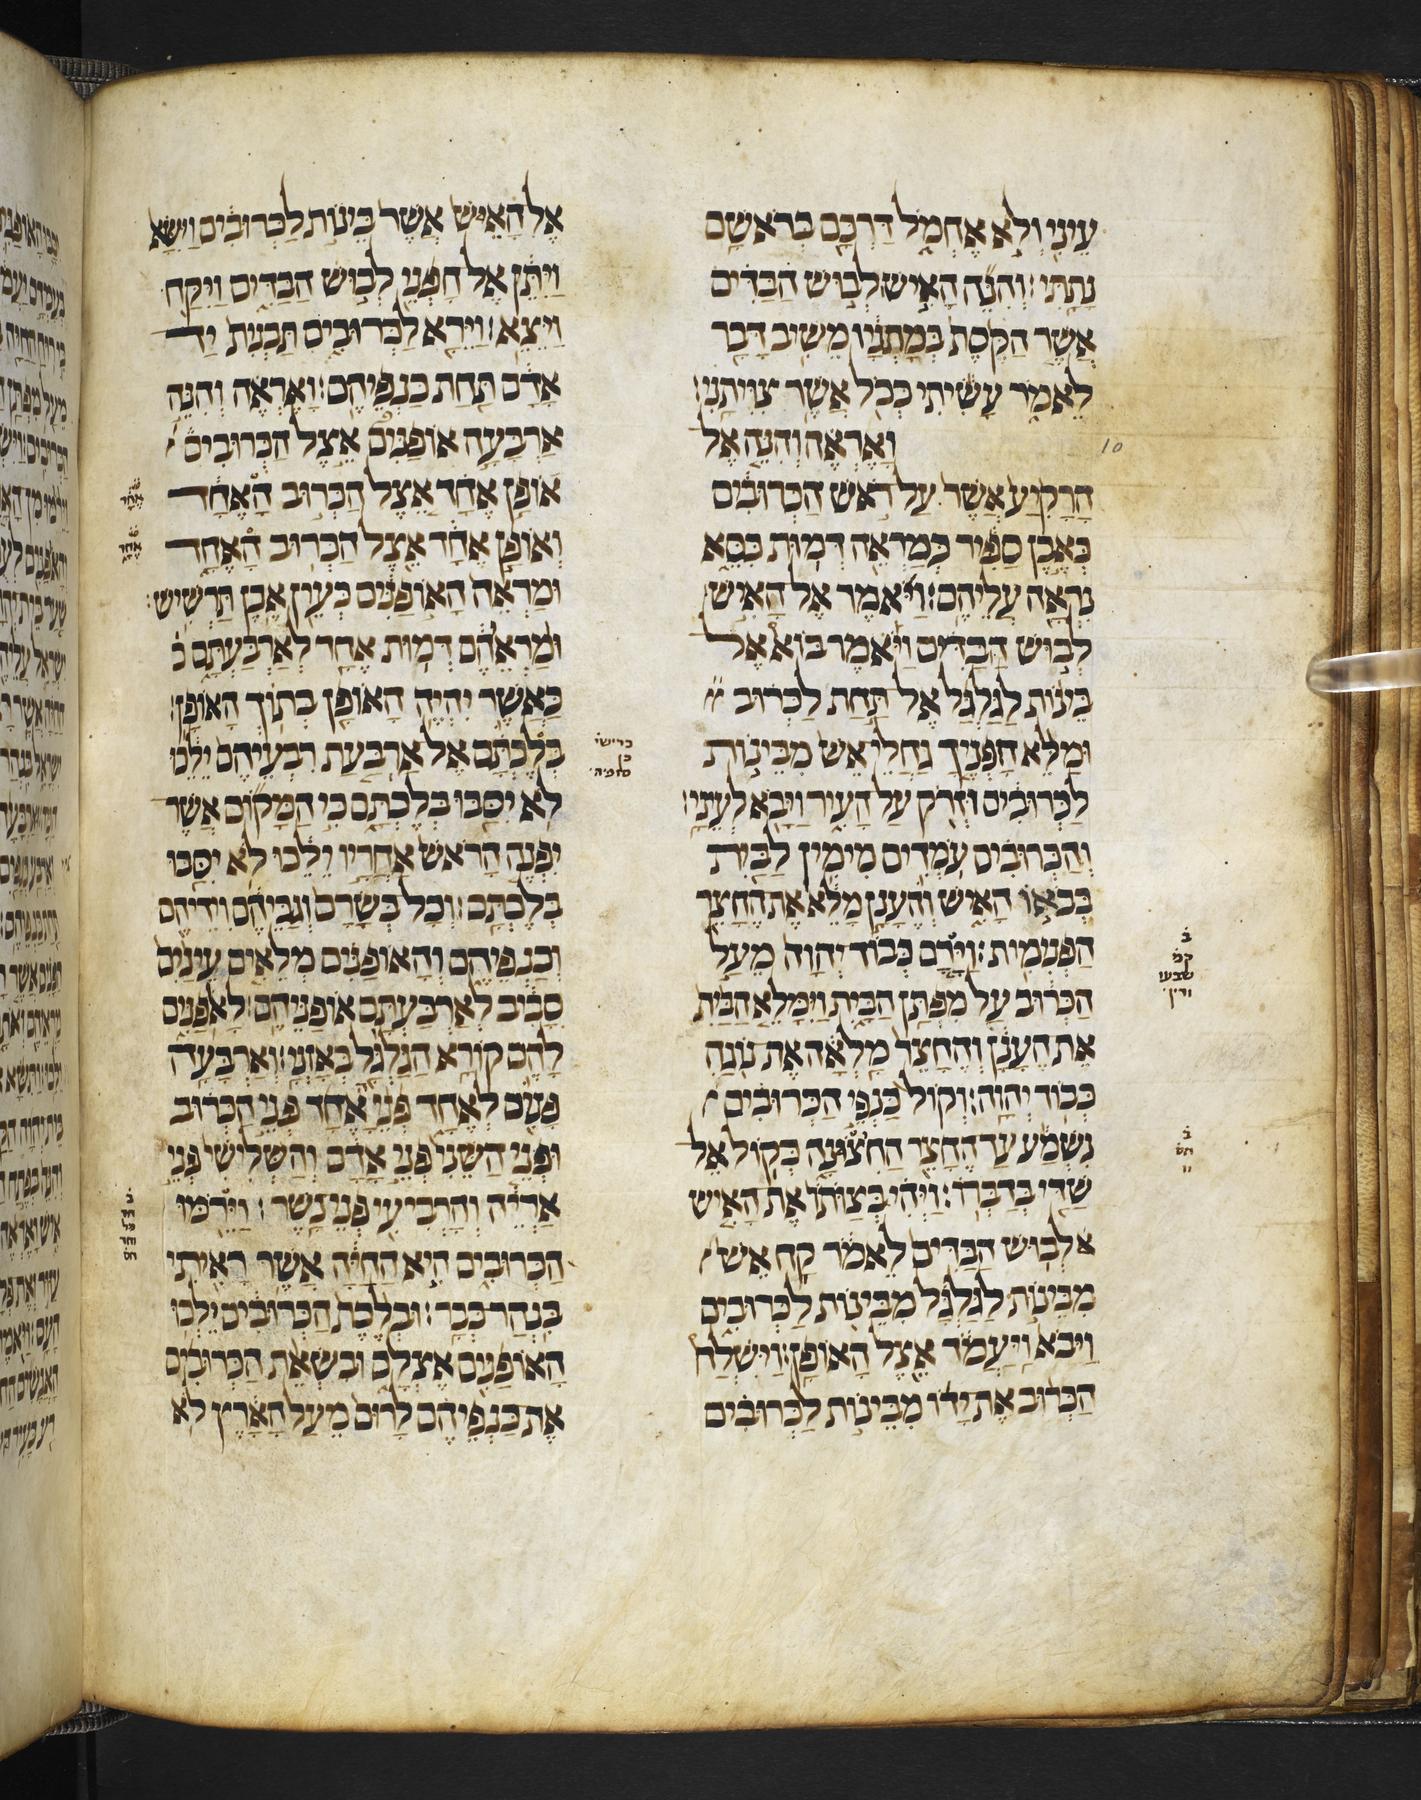 עֵינִי וְלֹא אֶחְמֹל דַּרְכָּם בְּרֹאשָׁם
נָתָתִּי׃ וְהִנֵּה הָאִישׁ לְבוּשׁ הַבַּדִּים
אֲשֶׁר הַקֶּסֶת בְּמָתְנָיו מֵשִׁיב דָּבָר
לֵאמֹר עָשִׂיתִי כְּכֹל אֲשֶׁר צִוִּיתָנִי׃
וָאֶרְאֶה וְהִנֵּה אֶל
10
הָרָקִיעַ אֲשֶׁר עַל רֹאשׁ הַכְּרוּבִים
כְּאֶבֶן סַפִּיר כְּמַרְאֵה דְּמוּת כִּסֵּא
נִרְאָה עֲלֵיהֶם׃ וַיֹּאמֶר אֶל הָאִישׁ
לְבוּשׁ הַבַּדִּים וַיֹּאמֶר בּוֹא אֶל
בֵּינוֹת לַגַּלְגַּל אֶל תַּחַת לַכְּרוּב
וּמַלֵּא חָפְנֶיךָ גַחֲלֵי אֵשׁ מִבֵּינוֹת
לַכְּרוּבִים וּזְרֹק עַל הָעִיר וַיָּבֹא לְעֵינָי׃
וְהַכְּרוּבִים עֹמְדִים מִימִין לַבַּיִת
בְּבֹאוֹ הָאִישׁ וְהֶעָנָן מָלֵא אֶת הֶחָצֵר
הַפְּנִימִית׃ וַיָּרָם כְּבוֹד יְהוָה מֵעַל
הַכְּרוּב עַל מִפְתַּן הַבָּיִת וַיִּמָּלֵא הַבַּיִת
אֶת הֶעָנָן וְהֶחָצֵר מָלְאָה אֶת נֹגַהּ
כְּבוֹד יְהוָה׃ וְקוֹל כַּנְפֵי הַכְּרוּבִים
נִשְׁמַע עַד הֶחָצֵר הַחִצֹנָה כְּקוֹל אֵל
שַׁדַּי בְּדַבְּרוֹ׃ וַיְהִי בְּצַוֹּתוֹ אֶת הָאִישׁ
לְבוּשׁ הַבַּדִּים לֵאמֹר קַח אֵשׁ
מִבֵּינוֹת לַגַּלְגַּל מִבֵּינוֹת לַכְּרוּבִים
וַיָּבֹא וַיַּעֲמֹד אֵצֶל הָאוֹפָן׃ וַיִּשְׁלַח
הַכְּרוּב אֶת יָדוֹ מִבֵּינוֹת לַכְּרוּבִים
אֶל הָאֵישׁ אֲשֶׁר בֵּינוֹת לַכְּרוּבִים וַיִּשָּׂא
וַיִּתֵּן אֶל חָפְנֵי לְבוּשׁ הַבַּדִּים וַיִּקַּח
וַיֵּצֵא׃ וַיֵּרָא לַכְּרוּבִים תַּבְנִית יַד
אָדָם תַּחַת כַּנְפֵיהֶם׃ וָאֶרְאֶה וְהִנֵּה
אַרְבָּעָה אוֹפַנִּים אֵצֶל הַכְּרוּבִים
אוֹפַן אֶחָד אֵצֶל הַכְּרוּב הָאֶחָד
וְאוֹפַן אֶחָד אֵצֶל הַכְּרוּב הָאֶחָד
וּמַרְאֵה הָאוֹפַנִּים כְּעֵין אֶבֶן תַּרְשִׁישׁ׃
וּמַרְאֵהֶם דְּמוּת אֶחָד לְאַרְבַּעְתָּם כ
כַּאֲשֶׁר יִהְיֶה הָאוֹפַן בְּתוֹךְ הָאוֹפָן׃
בְּלֶכְתָּם אֶל אַרְבַּעַת רִבְעֵיהֶם יֵלֵכוּ
לֹא יִסַּבּוּ בְּלֶכְתָּם כִּי הַמָּקוֹם אֲשֶׁר
יִפְנֶה הָרֹאשׁ אַחֲרָיו יֵלֵכוּ לֹא יִסַּבּוּ
בְּלֶכְתָּם׃ וְכָל בְּשָׂרָם וְגַבֵּיהֶם וִידֵיהֶם
וְכַנְפֵיהֶם וְהָאוֹפַנִּים מְלֵאִים עֵינַיִם
סָבִיב לְאַרְבַּעְתָּם אוֹפַנֵּיהֶם׃ לָאֹפַנִּים
לָהֶם קוֹרָא הַגַּלְגַּל בְּאָזְנָי׃ וְאַרְבָּעָה
פָנִים לְאֶחָד פְּנֵי אֶחָד פְּנֵי הַכְּרוּב
וּפְנֵי הַשֵּׁנִי פְּנֵי אָדָם וְהַשְּׁלִישִׁי פְּנֵי
אַרְיֵה וְהָרְבִיעִי פְּנֵי נָשֶׁר׃ וַיֵּרֹמּוּ
הַכְּרוּבִים הִיא הַחַיָּה אֲשֶׁר רָאִיתִי
בִּנְהַר כְּבָר׃ וּבְלֶכֶת הַכְּרוּבִים יֵלְכוּ
הָאוֹפַנִּים אֶצְלָם וּבִשְׂאֵת הַכְּרוּבִים
אֶת כַּנְפֵיהֶם לָרוּם מֵעַל הָאָרֶץ לֹא